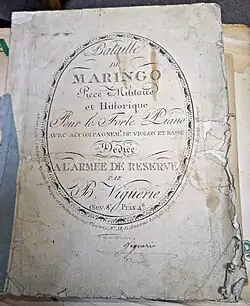 Bataille
DE
MARINGO
Piece Militaire
et Historique
Pour le Forte Piano
AVEC ACCOMPAGNEM.t DE VIOLON ET BASSE
Dédiée
A L'ARMEE DE RESERVE
PAR
B. Viguerie
Œuv. 8.e Prix
Viguerie